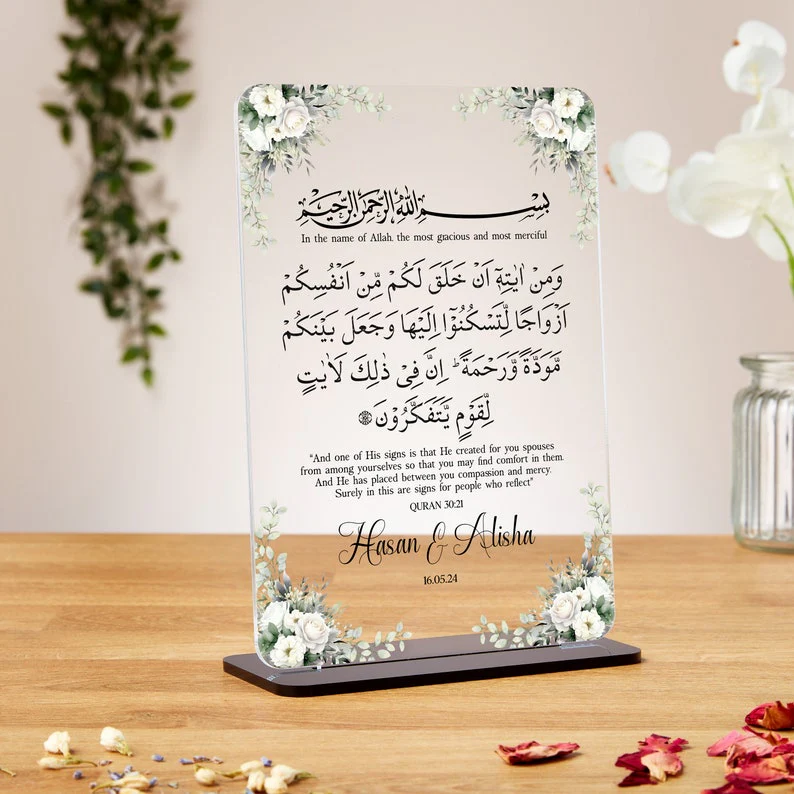 بِسْمِ اللهِ الرَّحْمٰنِ الرَّحِيْمِ
In the name of Allah, the most gracious and most merciful
وَمِنْ اٰيٰتِهٖٓ اَنْ خَلَقَ لَكُمْ مِّنْ اَنْفُسِكُمْ
اَزْوَاجًا لِّتَسْكُنُوْٓا اِلَيْهَا وَجَعَلَ بَيْنَكُمْ
مَّوَدَّةً وَّرَحْمَةً ؕ اِنَّ فِىْ ذٰلِكَ لَاٰيٰتٍ
لِّقَوْمٍ يَّتَفَكَّرُوْنَ
"And one of His signs is that He created for you spouses
from among yourselves so that you may find comfort in them.
And He has placed between you compassion and mercy.
Surely in this are signs for people who reflect"
QURAN 30:21
Hasan & Alisha
16.05.24